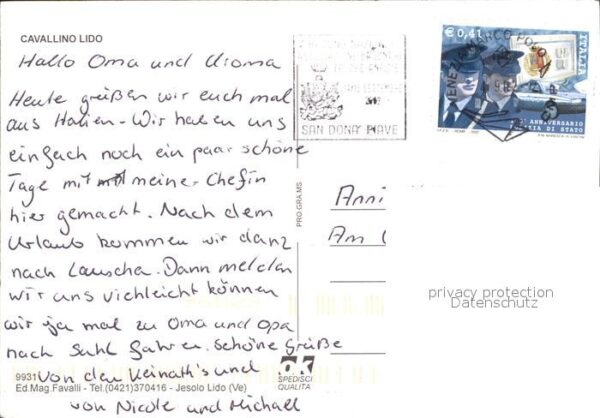 CAVALLINO LIDO
Hallo Oma und
Heute grüßen wir euch mal
aus Italien. Wir haben uns
einfach noch ein paar schöne
Tage mit meiner Chefin
hier gemacht. Nach dem
Urlaub kommen wir danz
nach Lauscha. Dann melden
wir uns vielleicht können
wir ja mal zu Oma und Opa
nach Suhl fahren. Schöne Grüße
von den Keinath's und
von Nicole und Michael
9931
Ed.Mag.Favalli - Tel.(0421)370416 - Jesolo Lido (Ve)
PRO.GRA.MS
SPEDISCI
QUALITÀ
SAN DONA' PIAVE
€ 0,41
ITALIA
ANNIVERSARIO
POLIZIA DI STATO
VENEZIA MARCO POLO
Anni
Am
privacy protection
Datenschutz